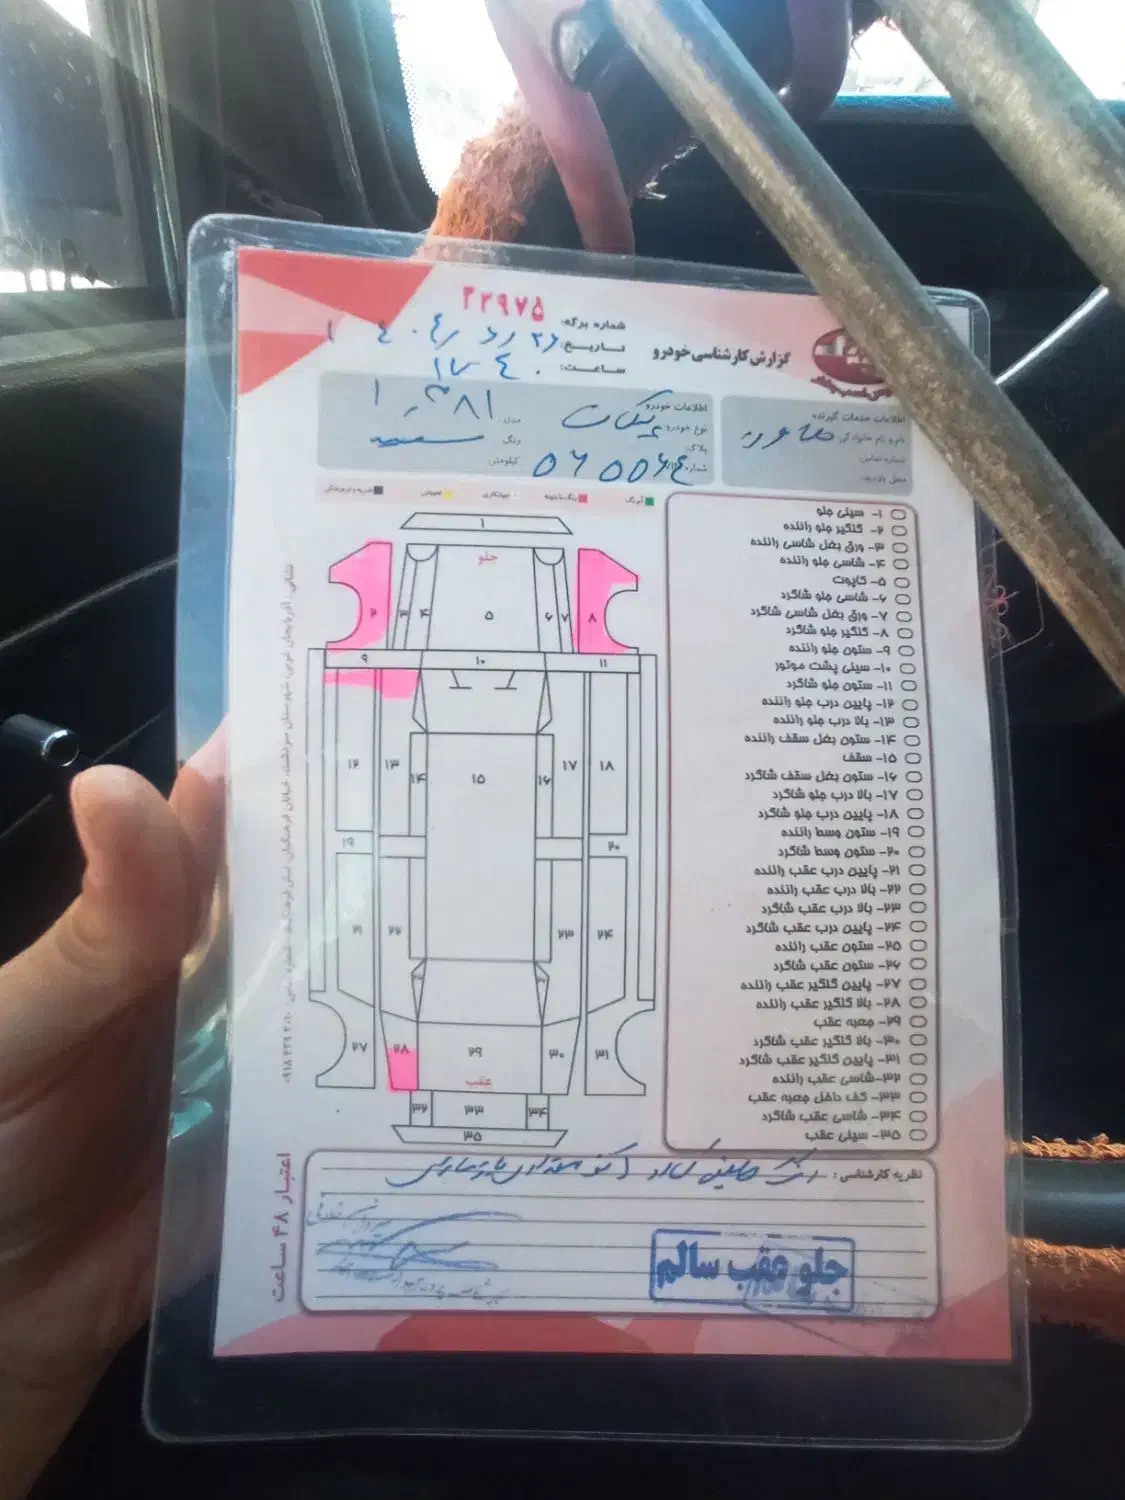 ۲۲۹۷۵
شماره برگه:
گزارش کارشناسی خودرو
تـاریـخ:
سـاعـت: ۱۷ ۴۰
اطلاعات خدمات گیرنده
نام و نام خانوادگی:
شماره تماس:
محل بازدید:
اطلاعات خودرو
نوع خودرو: پیکان مدل: ۱۳۸۱
پلاک: رنگ: سفید
شماره کیلومتر:
آبرنگ
تعویض
۱- سینی جلو
۲- گلگیر جلو راننده
۳- ورق بغل شاسی راننده
۴- شاسی جلو راننده
۵- کاپوت
۶- شاسی جلو شاگرد
۷- ورق بغل شاسی شاگرد
۸- گلگیر جلو شاگرد
۹- ستون جلو راننده
۱۰- سینی پشت موتور
۱۱- ستون جلو شاگرد
۱۲- پایین درب جلو راننده
۱۳- بالا درب جلو راننده
۱۴- ستون بغل سقف راننده
۱۵- سقف
۱۶- ستون بغل سقف شاگرد
۱۷- بالا درب جلو شاگرد
۱۸- پایین درب جلو شاگرد
۱۹- ستون وسط راننده
۲۰- ستون وسط شاگرد
۲۱- پایین درب عقب راننده
۲۲- بالا درب عقب راننده
۲۳- بالا درب عقب شاگرد
۲۴- پایین درب عقب شاگرد
۲۵- ستون عقب راننده
۲۶- ستون عقب شاگرد
۲۷- پایین گلگیر عقب راننده
۲۸- بالا گلگیر عقب راننده
۲۹- جعبه عقب
۳۰- بالا گلگیر عقب شاگرد
۳۱- پایین گلگیر عقب شاگرد
۳۲- شاسی عقب راننده
۳۳- کف داخل جعبه عقب
۳۴- شاسی عقب شاگرد
۳۵- سینی عقب
۱
جلو
۲ ۳ ۴ ۵ ۶ ۷ ۸
۹ ۱۰ ۱۱
۱۲ ۱۳ ۱۴ ۱۵ ۱۶ ۱۷ ۱۸
۱۹ ۲۰
۲۱ ۲۲ ۲۳ ۲۴
۲۷ ۲۸ ۲۹ ۳۰ ۳۱
عقب
۳۲ ۳۳ ۳۴
۳۵
نظریه کارشناسی:
جلو عقب سالم
اعتبار ۴۸ ساعت